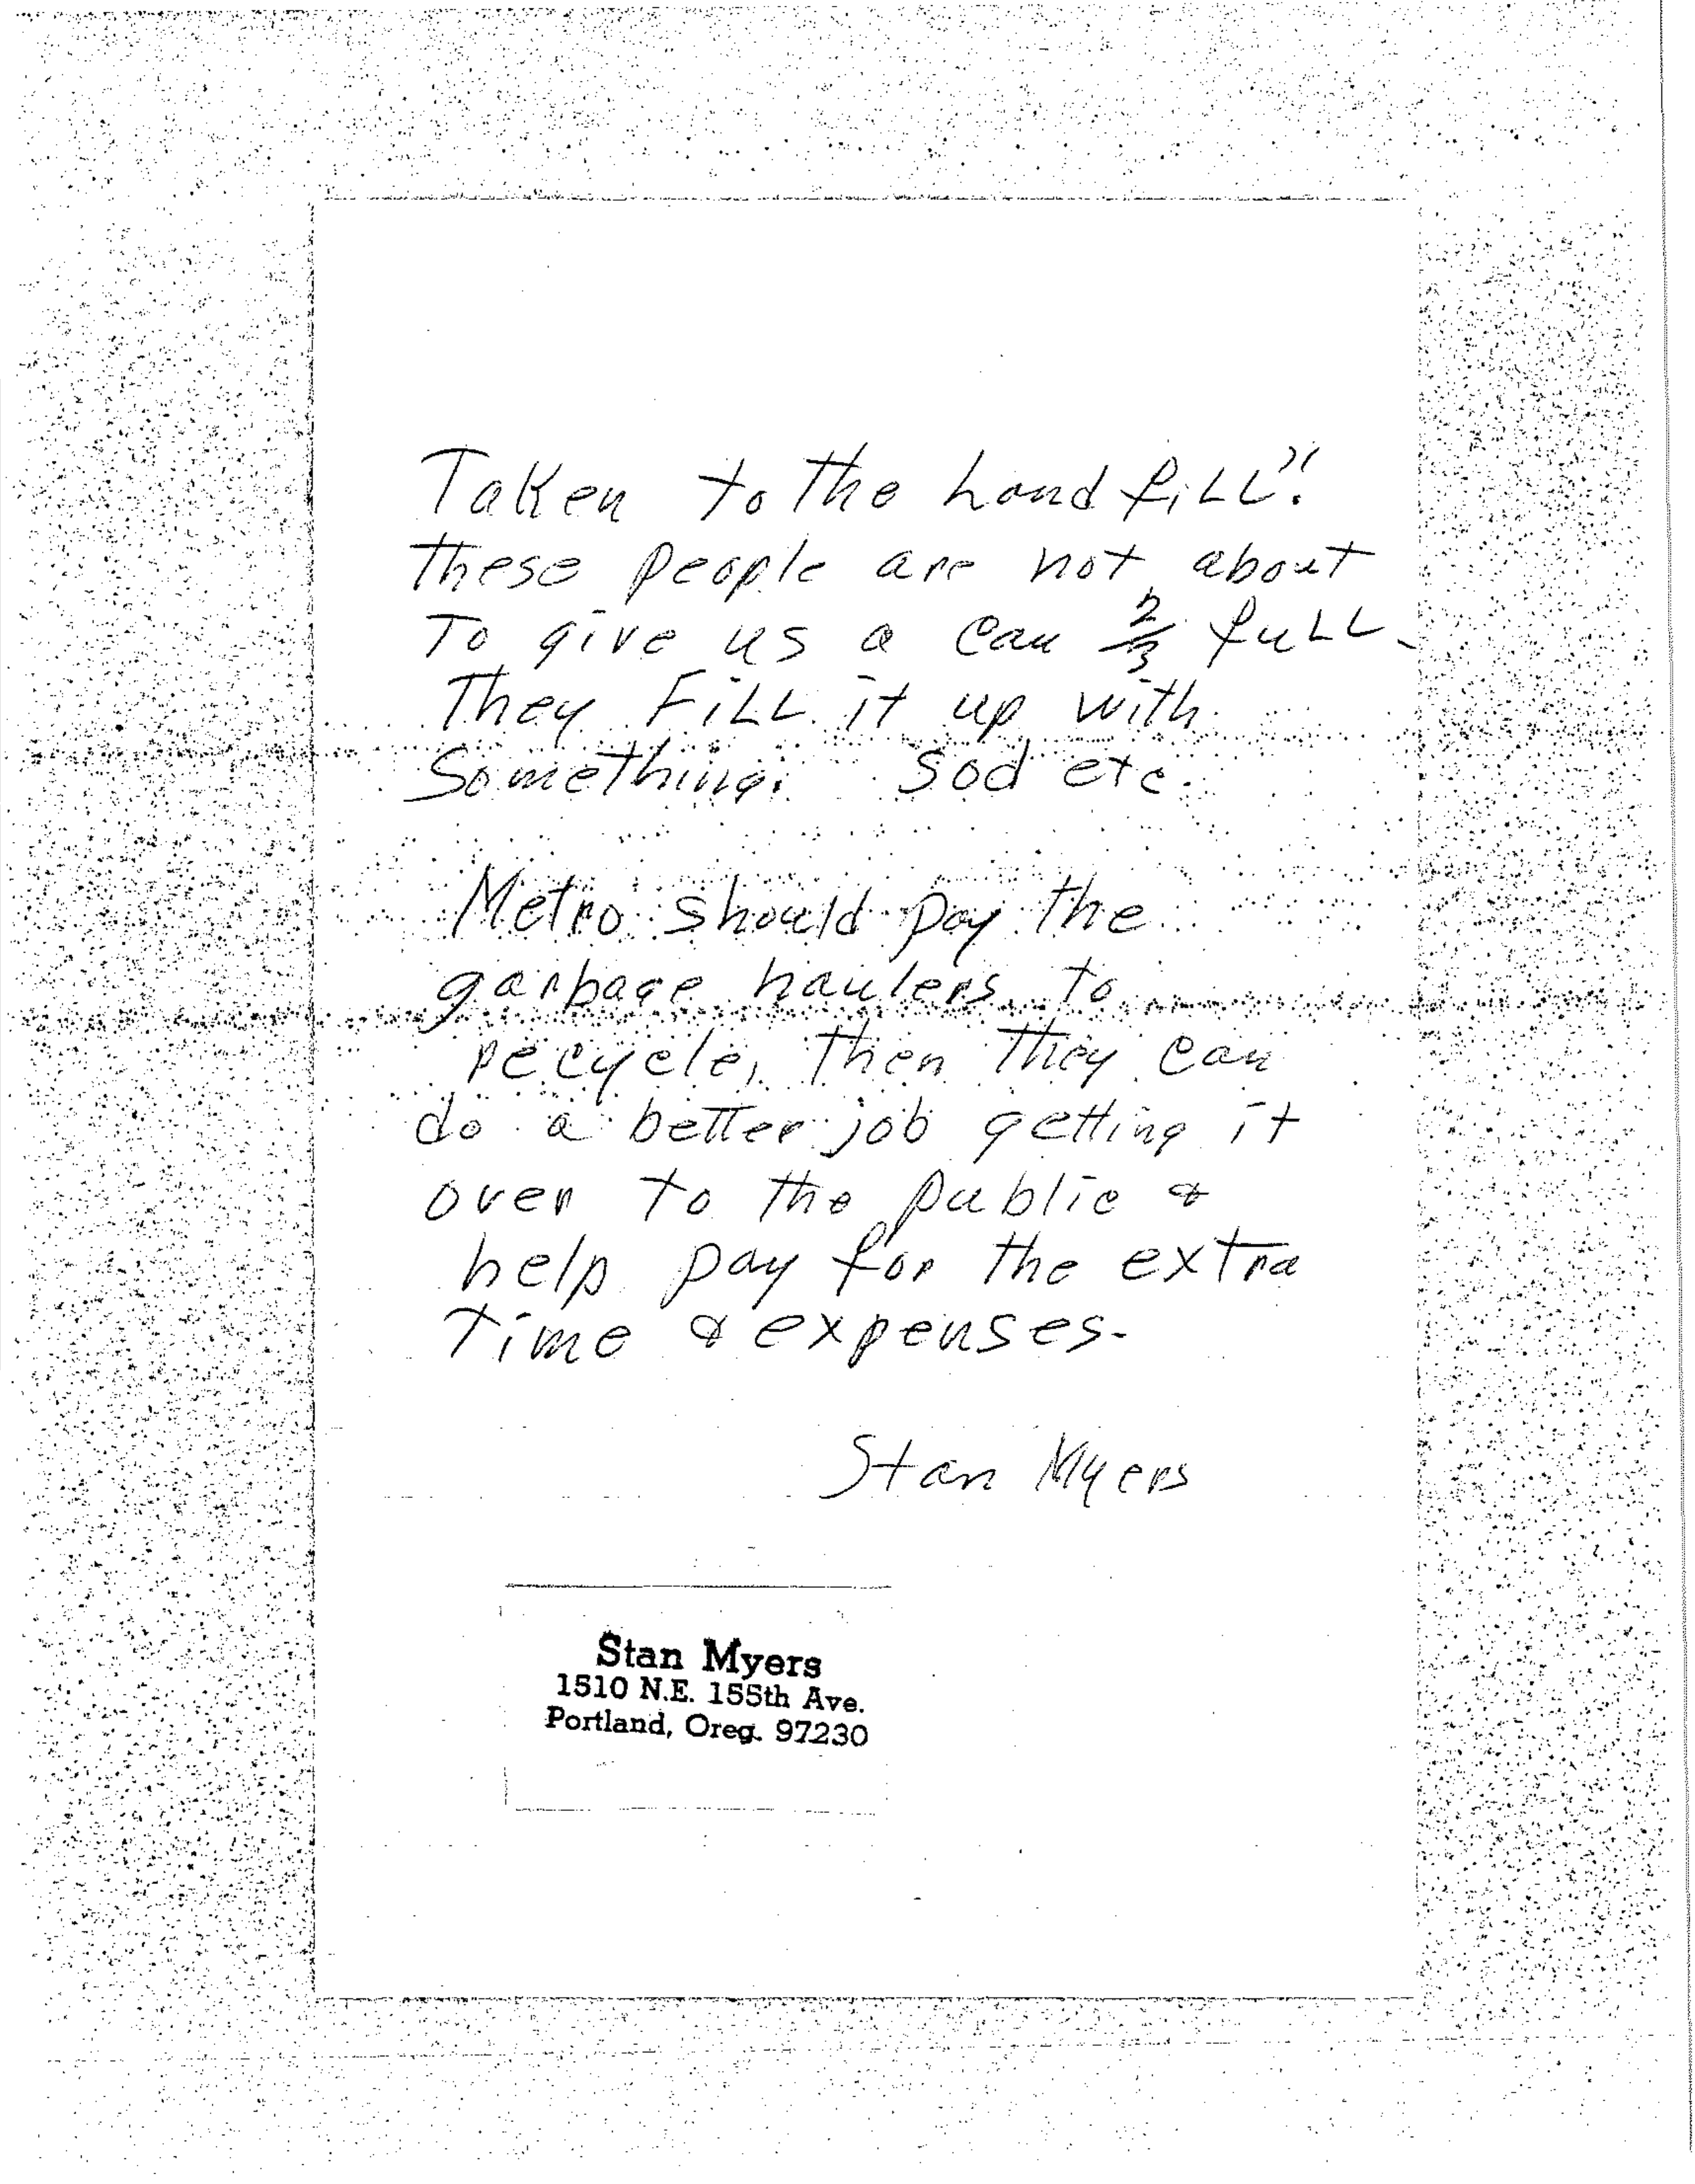 Taken to the land fill".
These people are not about
To give us a can 2/3 full.
They Fill it up with
Something. Sod etc.
Metro should pay the
garbage haulers to
recycle, Then They can
do a better job getting it
over to the public &
help pay for the extra
Time & expenses.
Stan Myers
Stan Myers
1510 N.E. 155th Ave.
Portland, Oreg. 97230